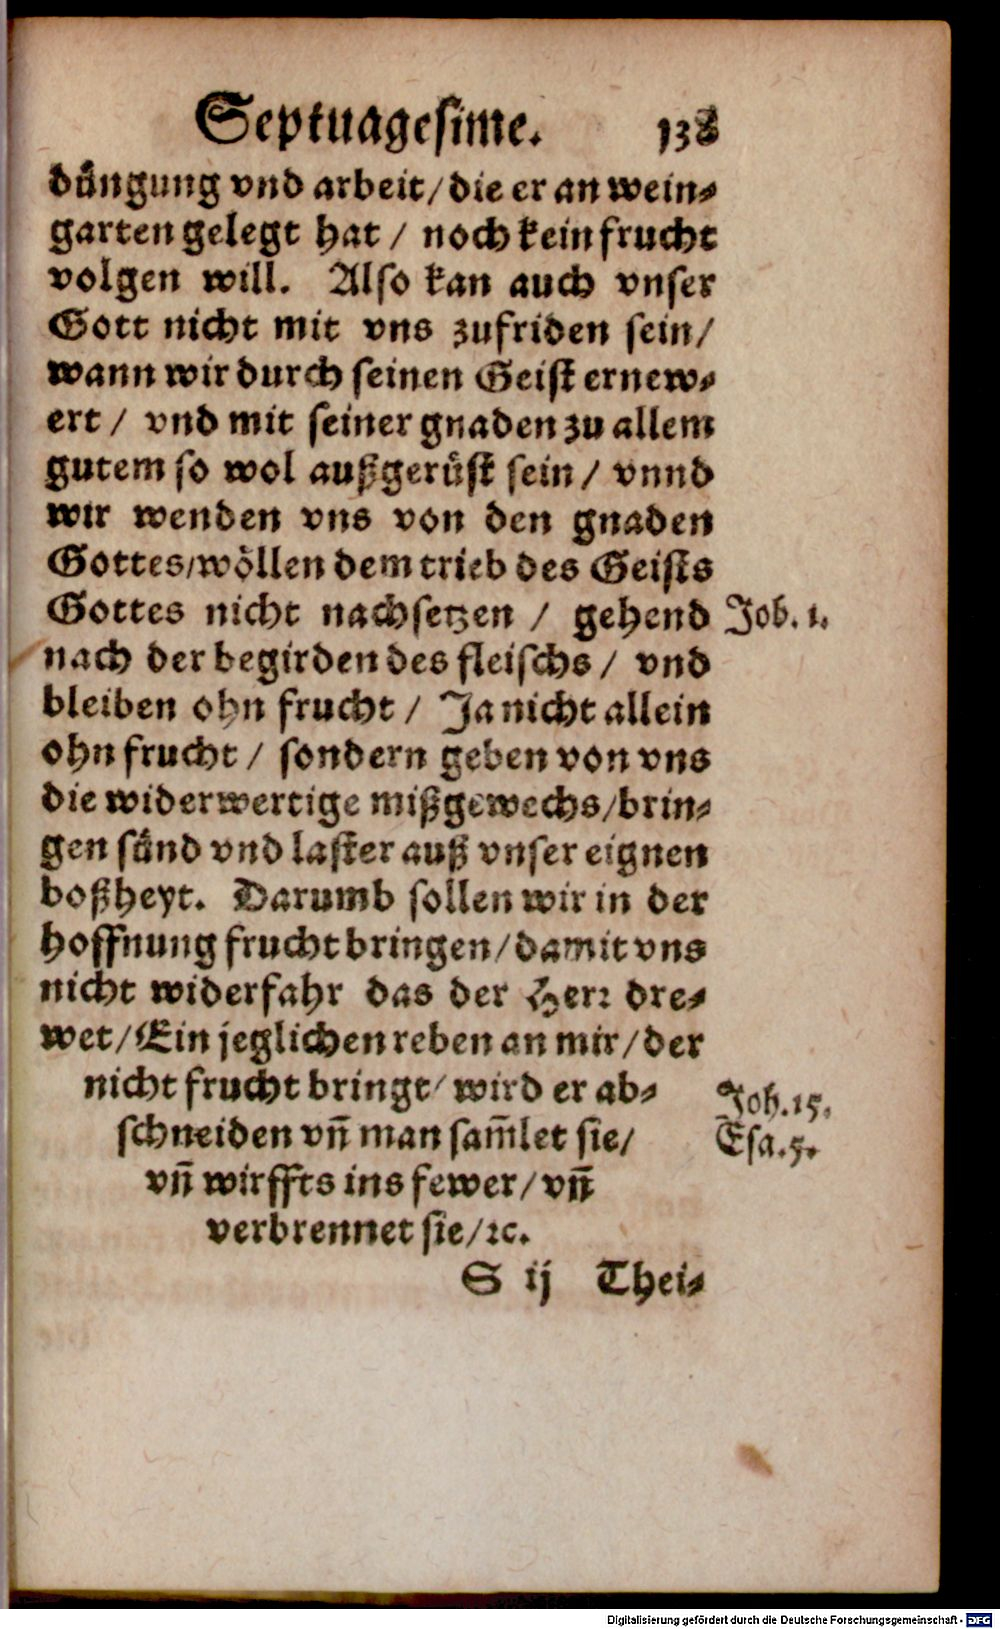 Septuagesime. 138
düngung vnd arbeit/die er an wein⸗
garten gelegt hat / noch kein frucht
volgen will. Also kan auch vnser
Gott nicht mit vns zufriden sein/
wann wir durch seinen Geist ernew⸗
ert / vnd mit seiner gnaden zu allem
gutem so wol außgerüst sein / vnnd
wir wenden vns von den gnaden
Gottes/wöllen dem trieb des Geists
Gottes nicht nachsetzen / gehend
Job. 1.
nach der begirden des fleischs / vnd
bleiben ohn frucht / Ja nicht allein
ohn frucht / sondern geben von vns
die widerwertige mißgewechs/brin⸗
gen sünd vnd laster auß vnser eignen
boßheyt. Darumb sollen wir in der
hoffnung frucht bringen/damit vns
nicht widerfahr das der Herr dre⸗
wet/Ein jeglichen reben an mir/der
nicht frucht bringt/ wird er ab⸗
Joh. 15.
schneiden vñ man sam̃let sie/
Esa. 5.
vñ wirffts ins fewer/vñ
verbrennet sie/ꝛc.
S ij Thei⸗
Digitalisierung gefördert durch die Deutsche Forschungsgemeinschaft - DFG